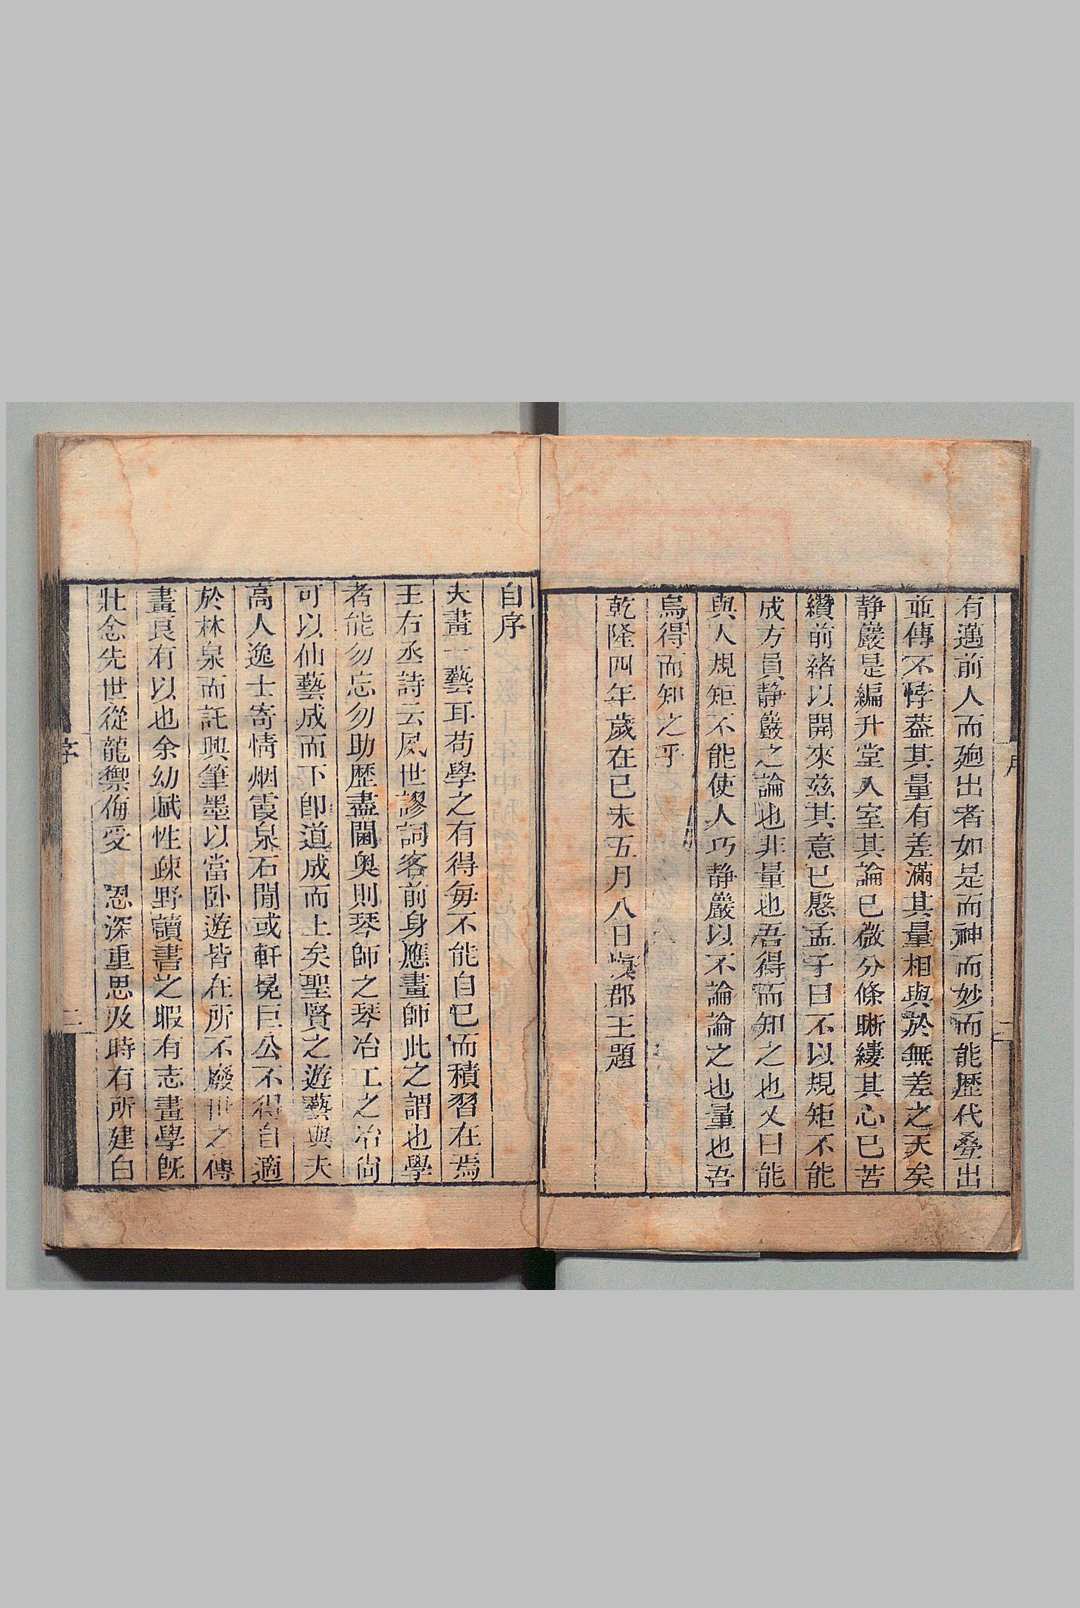 有邁前人而逈出者如是而神而妙而能歷代叠出
並傳不悖葢其量有差滿其量相與於無差之天矣
静巖是編升堂入室其論已微分條晰縷其心已苦
纘前緒以開來玆其意已慇孟子曰不以規矩不能
成方員静巖之論也非量也吾得而知之也又曰能
與人規矩不能使人巧静巖以不論論之也量也吾
烏得而知之乎
乾隆四年歲在己未五月八日慎郡王題
序
二
自序
夫畫一藝耳苟學之有得每不能自已而積習在焉
王右丞詩云夙世謬詞客前身應畫師此之謂也學
者能勿忘勿助歷盡閫奥則琴師之琴冶工之冶尚
可以仙藝成而下卽道成而上矣聖賢之遊藝與夫
高人逸士寄情烟霞泉石閒或軒冕巨公不得自適
於林泉而託興筆墨以當卧遊皆在所不廢世之傳
畫良有以也余幼賦性疎野讀書之暇有志畫學旣
壯念先世從龍禦侮受 恩深重思及時有所建白
序
二